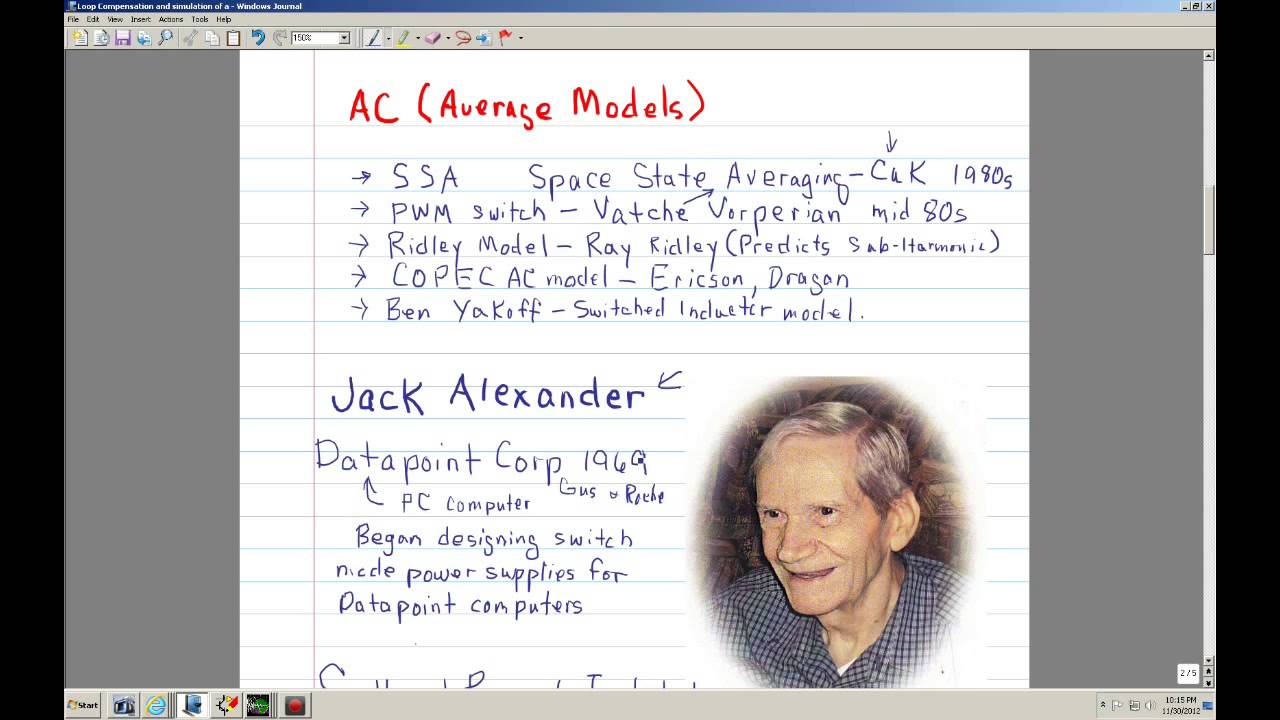 Loop Compensation and simulation of a - Windows Journal
File Edit View Insert Actions Tools Help
150%
AC (Average Models)
→ SSA Space State Averaging - Cuk 1980s
→ PWM switch - Vatche Vorperian mid 80s
→ Ridley Model - Ray Ridley (Predicts Sub-Harmonic)
→ COPEC AC model - Ericson, Dragan
→ Ben Yakoff - Switched Inductor model.
Jack Alexander
Datapoint Corp 1969
Gus & Roche
PC Computer
Began designing switch
mode power supplies for
Datapoint computers
2/5
Start
10:15 PM
11/30/2012